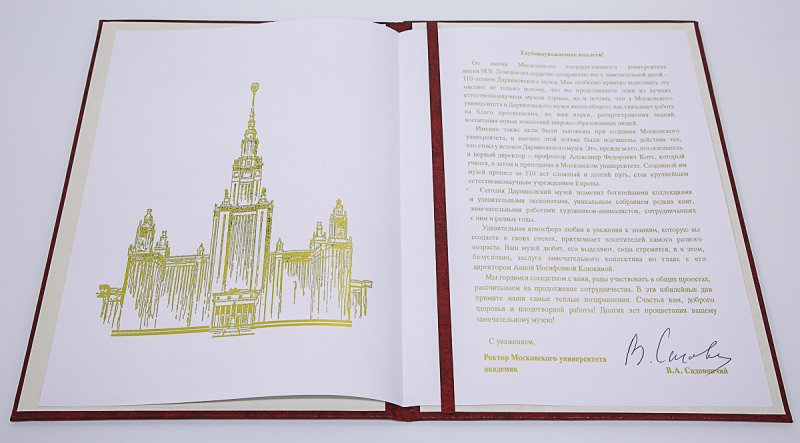 Глубокоуважаемые коллеги!
От имени Московского государственного университета
имени М.В. Ломоносова сердечно поздравляю вас с замечательной датой –
110-летием Дарвиновского музея. Мне особенно приятно выполнить эту
миссию не только потому, что вы представляете один из лучших
естественнонаучных музеев страны, но и потому, что у Московского
университета и Дарвиновского музея много общего: нас связывает работа
на благо просвещения, во имя науки, распространения знаний,
воспитания новых поколений широко образованных людей.
Именно такие цели были заложены при создании Московского
университета, и именно этой логике были подчинены действия тех,
кто стоял у истоков Дарвиновского музея. Это, прежде всего, его основатель
и первый директор – профессор Александр Федорович Котс, который
учился, а затем и преподавал в Московском университете. Созданный им
музей прошел за 110 лет сложный и долгий путь, став крупнейшим
естественнонаучным учреждением Европы.
Сегодня Дарвиновский музей знаменит богатейшими коллекциями
и удивительными экспонатами, уникальным собранием редких книг,
замечательными работами художников-анималистов, сотрудничающих
с ним в разные годы.
Удивительная атмосфера любви и уважения к знаниям, которую вы
создаете в своих стенах, притягивает посетителей самого разного
возраста. Ваш музей любят, его выделяют, сюда стремятся, и в этом,
безусловно, заслуга замечательного коллектива во главе с его
директором Анной Иосифовной Клюкиной.
Мы гордимся соседством с вами, рады участвовать в общих проектах,
рассчитываем на продолжение сотрудничества. В эти юбилейные дни
примите наши самые теплые поздравления. Счастья вам, доброго
здоровья и плодотворной работы! Долгих лет процветания вашему
замечательному музею!
С уважением,
Ректор Московского университета
академик В.А. Садовничий